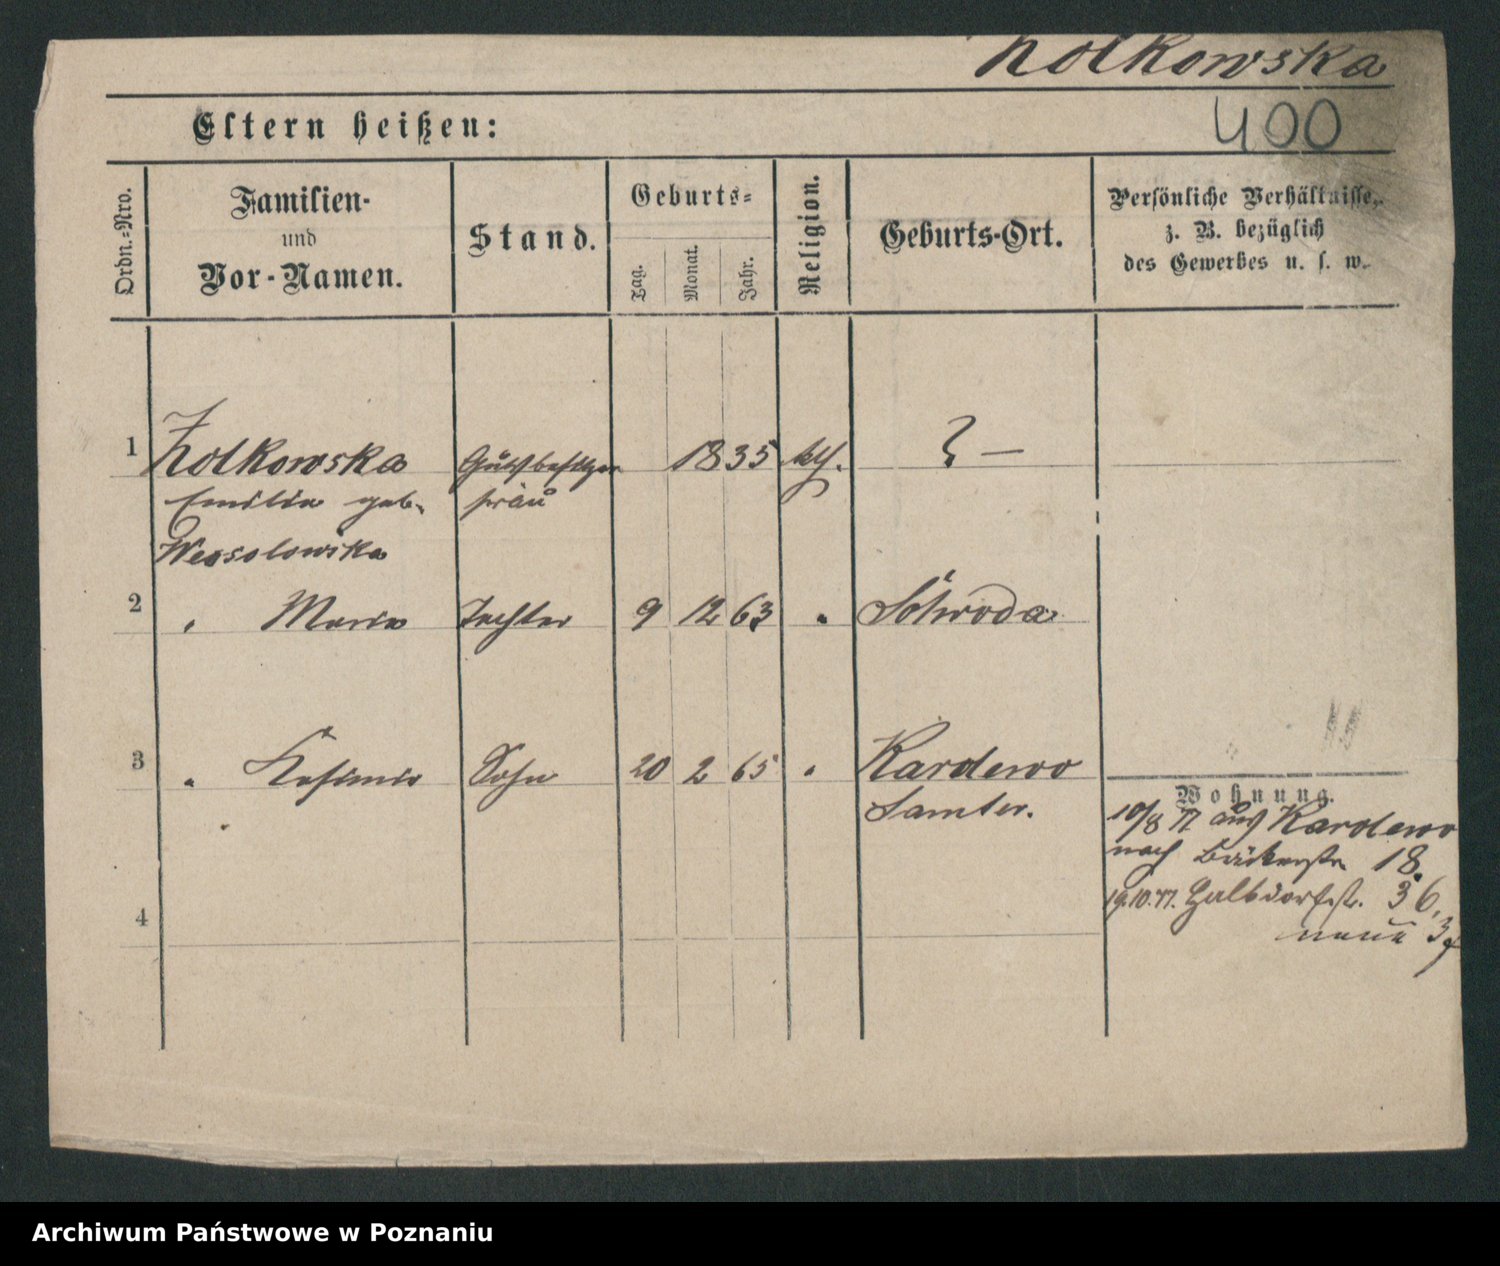 Zolkowska
400
Eltern heißen:
Ordn.-Nro.
Familien-
und
Vor-Namen.
Stand.
Geburts-
Tag.
Monat.
Jahr.
Religion.
Geburts-Ort.
Persönliche Verhältnisse,
z. B. bezüglich
des Gewerbes u. s. w.
1 Zolkowska Gutsbesitzer 1835 kth. ? —
Emilie geb. frau
Wessolowska
2 " Maria Tochter 9 12 63 " Schroda
3 " Kasimir Sohn 20 2 65 " Kardewo
Samter.
Wohnung.
10/8 77 aus Kardewo
nach Bäckerstr. 18.
19.10.77. Halbdorfstr. 36,
neue
4
Archiwum Państwowe w Poznaniu